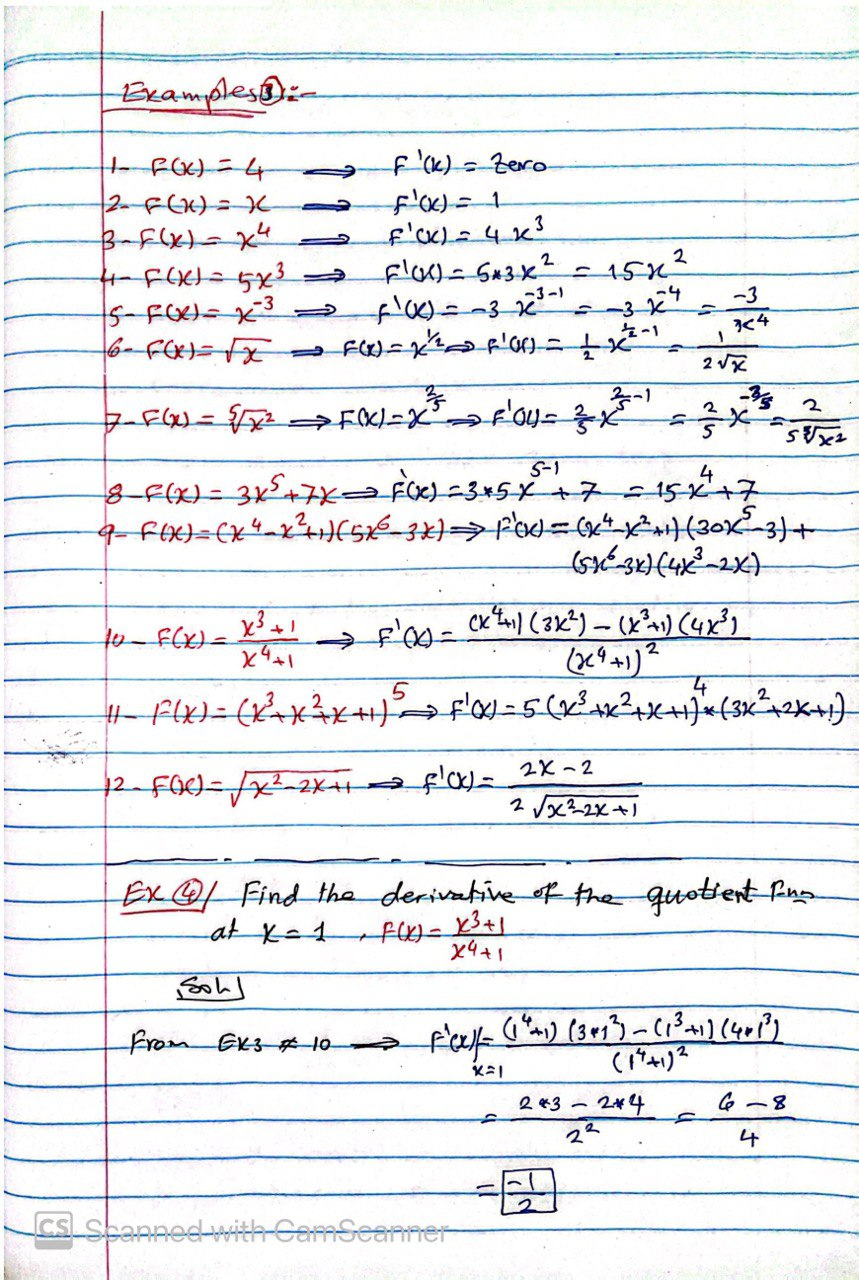 Examples ③:-
1- F(x) = 4 ⟹ F'(x) = Zero
2- F(x) = x ⟹ F'(x) = 1
3- F(x) = x⁴ ⟹ F'(x) = 4x³
4- F(x) = 5x³ ⟹ F'(x) = 5*3x² = 15x²
5- F(x) = x⁻³ ⟹ F'(x) = -3 x⁻³⁻¹ = -3 x⁻⁴ = -3/x⁴
6- F(x) = √x ⟹ F(x) = x^(1/2) ⟹ F'(x) = 1/2 x^(1/2 -1) = 1/(2√x)
7- F(x) = ⁵√x² ⟹ F(x) = x^(2/5) ⟹ F'(x) = 2/5 x^(2/5 -1) = 2/5 x^(-3/5) = 2/(5 ⁵√x²)
8- F(x) = 3x⁵+7x ⟹ F'(x) = 3*5x⁵⁻¹ + 7 = 15x⁴+7
9- F(x) = (x⁴-x²+1)(5x⁶-3x) ⟹ F'(x) = (x⁴-x²+1)(30x⁵-3)+
(5x⁶-3x)(4x³-2x)
10- F(x) = (x³+1)/(x⁴+1) ⟹ F'(x) = ((x⁴+1)(3x²) - (x³+1)(4x³))/(x⁴+1)²
11- F(x) = (x³+x²+x+1)⁵ ⟹ F'(x) = 5(x³+x²+x+1)⁴*(3x²+2x+1)
12- F(x) = √(x²-2x+1) ⟹ F'(x) = (2x-2)/(2√(x²-2x+1))
Ex ④/ Find the derivative of the quotient Fun
at x = 1 , F(x) = (x³+1)/(x⁴+1)
Sol/
From EX3 # 10 ⟹ F'(x)|x=1 = ((1⁴+1)(3*1²) - (1³+1)(4*1³))/(1⁴+1)²
= (2*3 - 2*4)/2² = (6-8)/4
= -1/2
CS Scanned with CamScanner